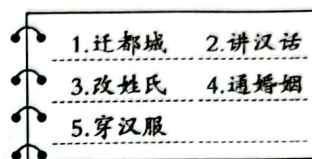 1.迁都城 2.讲汉话
3.改姓氏 4.通婚姻
5.穿汉服